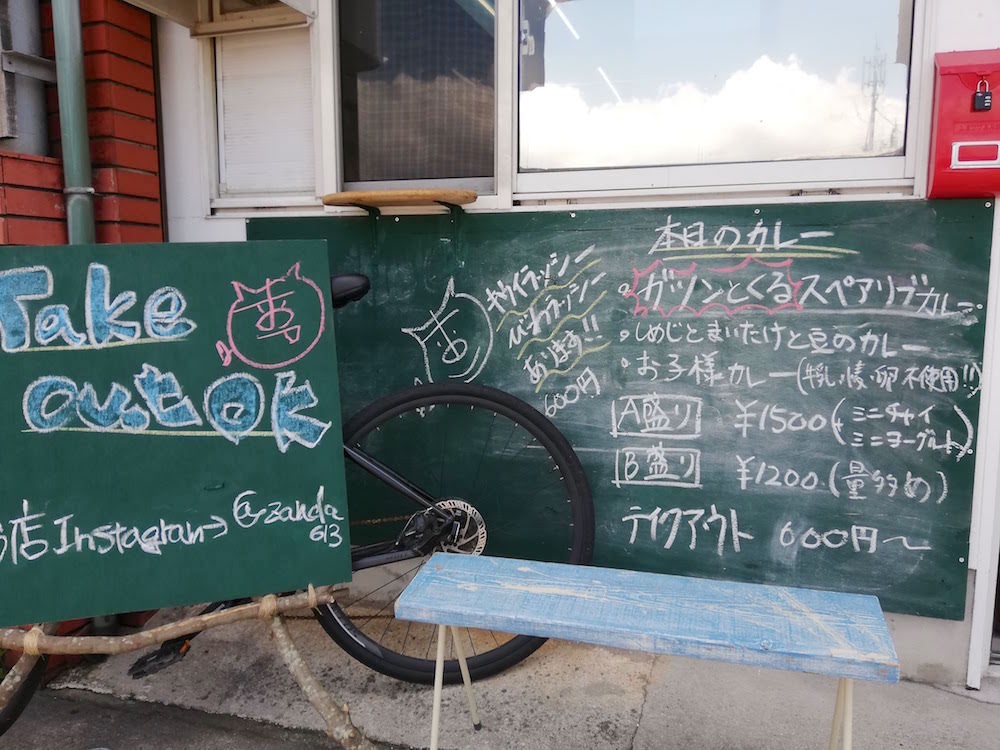 Take
out OK
店 Instagram→ @zanda
613
キウイラッシー
びわラッシー
あります!!
600円
本日のカレー
ガツンとくるスペアリブカレー
しめじとまいたけと豆のカレー
お子様カレー(牛乳・卵不使用!!)
A盛り ¥1500(ミニチャイ
ミニヨーグルト)
B盛り ¥1200(量多め)
テイクアウト 600円〜